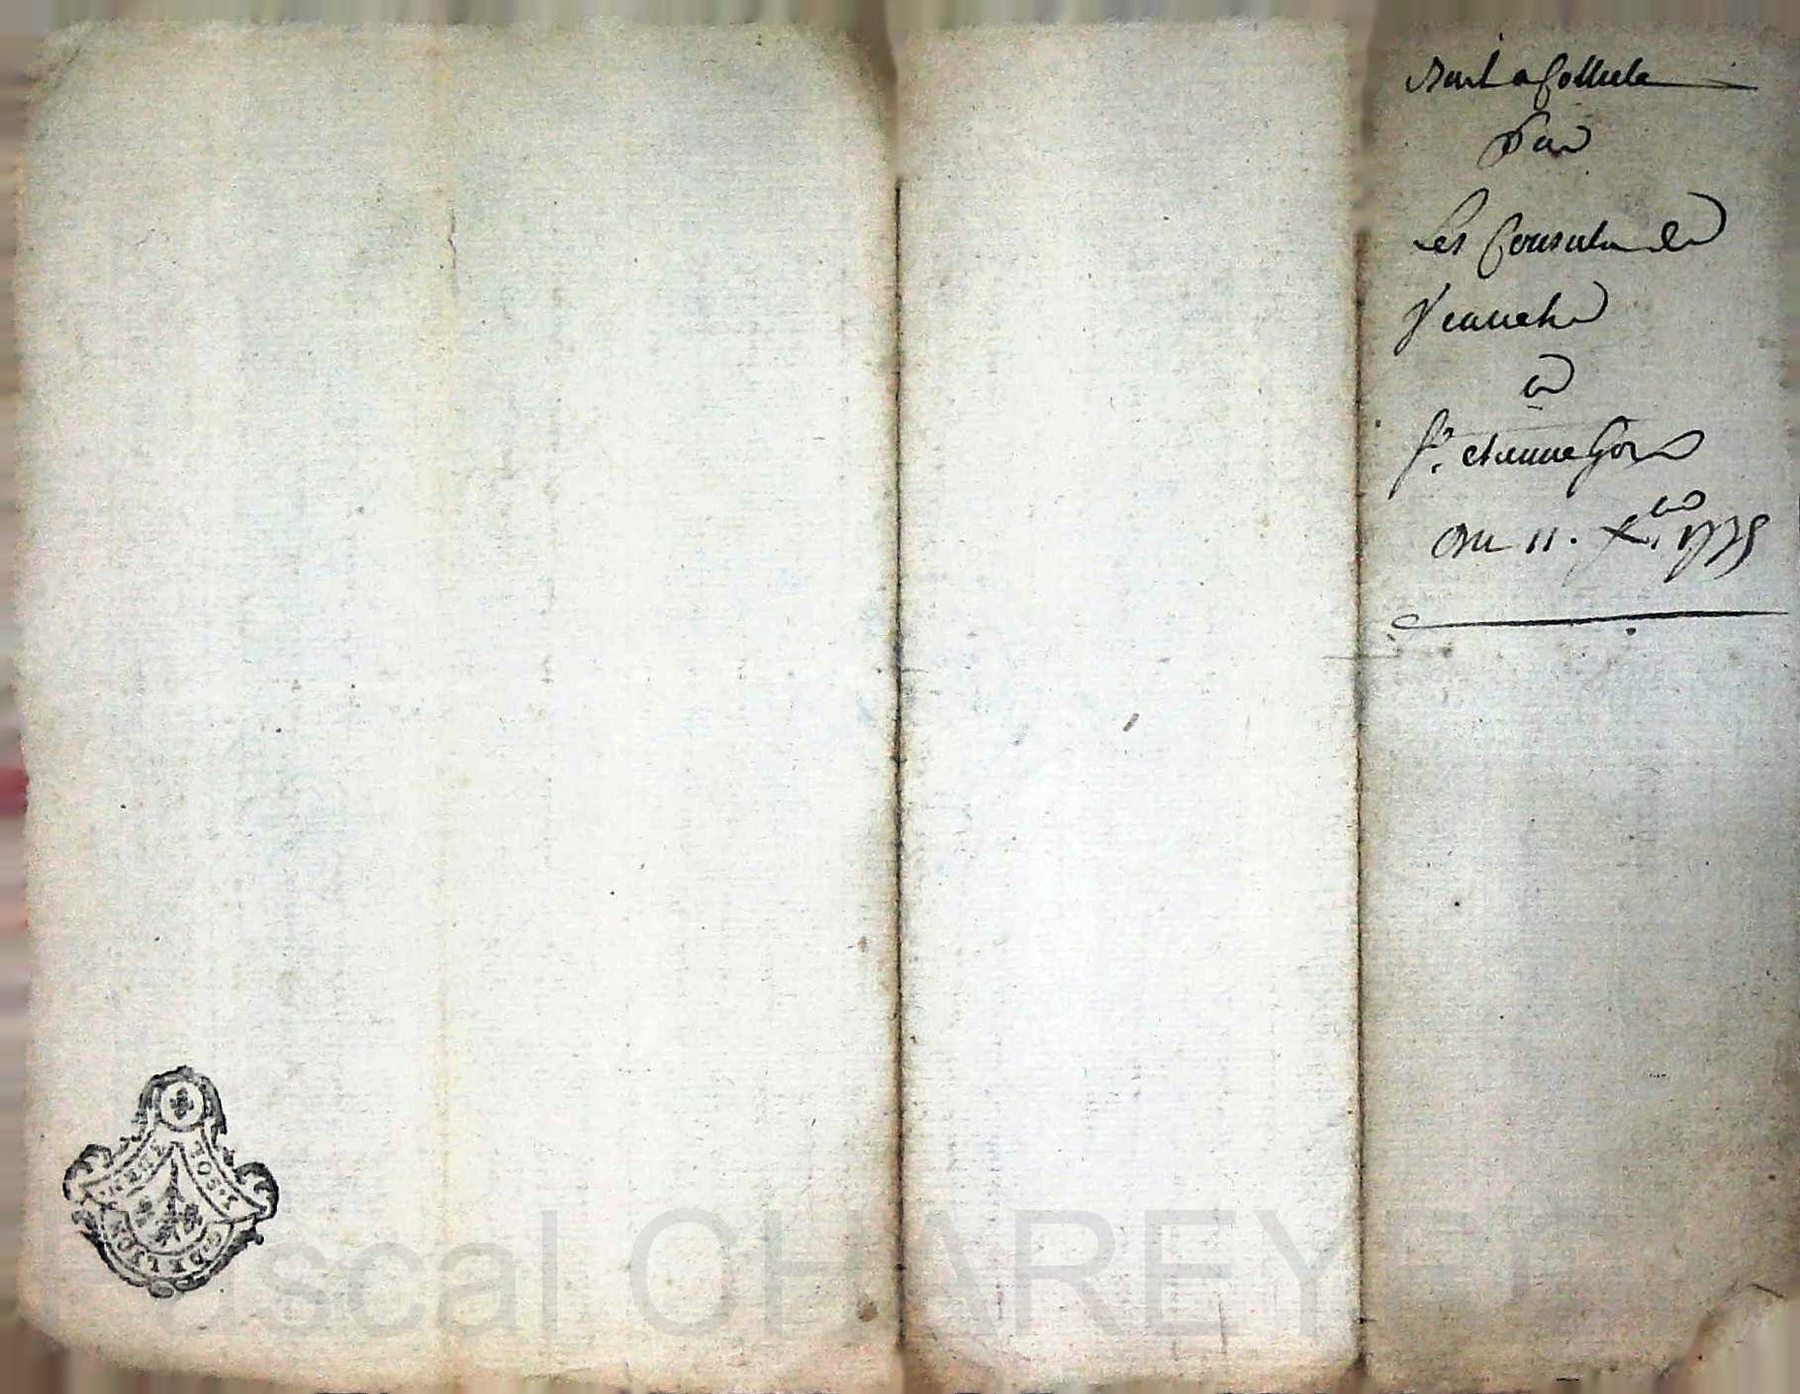 Bail a Collecte
par
Les Consuls de
Veauche
a
St. etienne Gor
Du 11. Xbre 1775
Pascal CHAREYRE